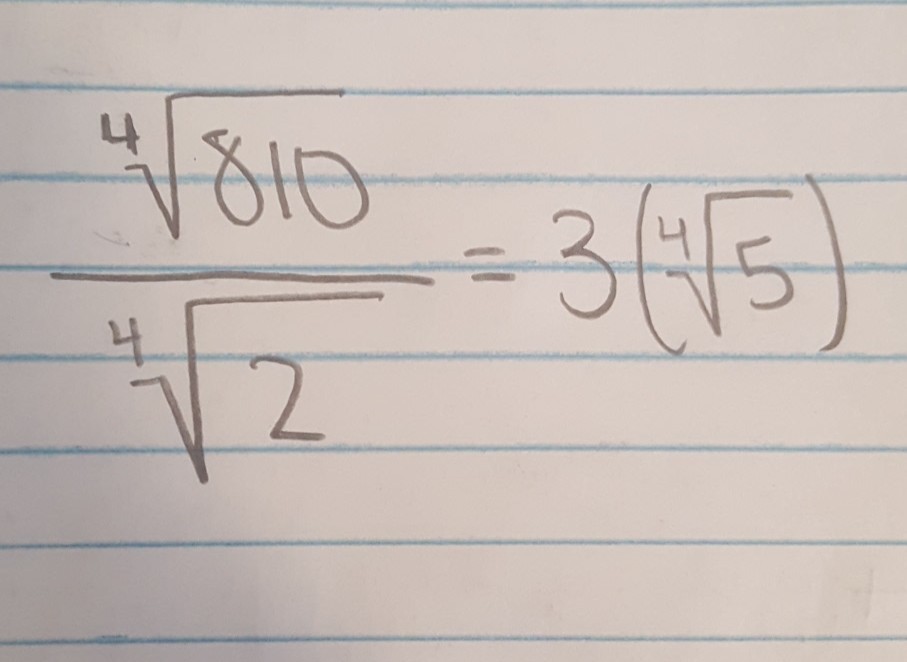 ⁴√810 / ⁴√2 = 3(⁴√5)